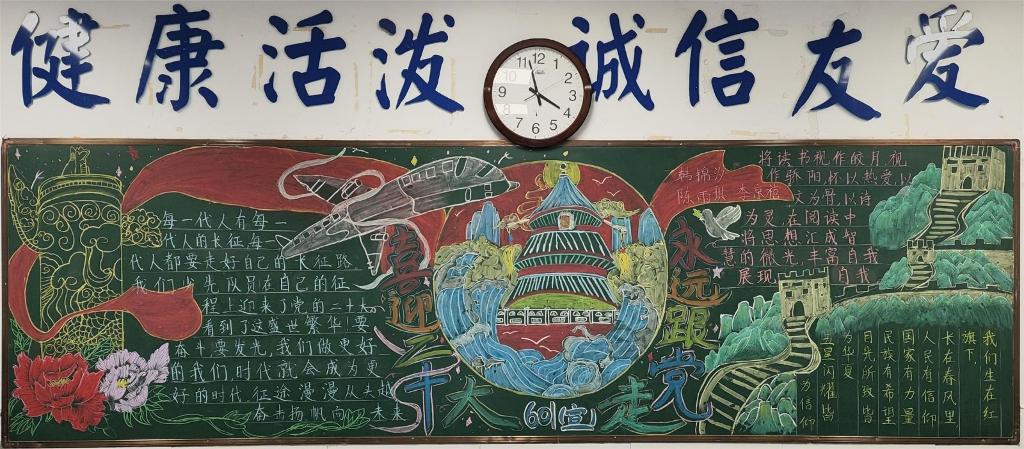 健康活泼 诚信友爱
每一代人有每一
代人的长征,每一
代人都要走好自己的长征路
我们 先队员在自己的征
程上迎来了党的二十大
看到了这盛世繁华!要
奋斗要发光,我们做更好
的我们时代就会成为更
好的时代,征途漫漫从头越
奋击扬帆向 未来
喜迎二十大
永远跟党走
601(宣)
韩锦汐
陈雨琪 李
将读书视作皎月,视
作骄阳怀以热爱,以
文为骨以诗
为灵,在阅读中
将思想汇成智
慧的微光,丰富自我
展现 自我
我们生在红
旗下
长在春风里
人民有信仰
国家有力量
民族有希望
目光所致皆
为华夏
五星闪耀皆
为信仰
12
1
2
3
4
5
6
7
8
9
10
11